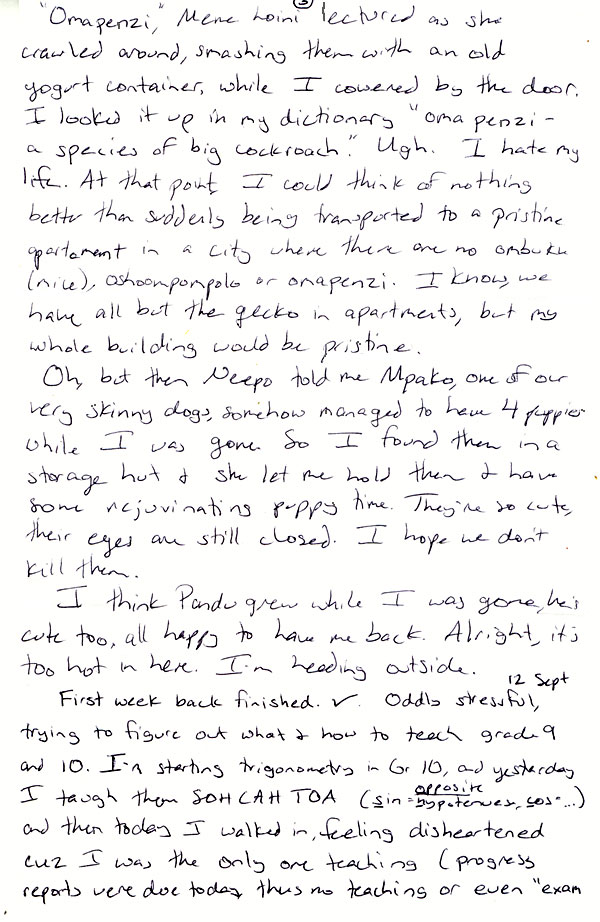 ③
"Omapenzi," Meme Loini lectured as she
crawled around, smashing them with an old
yogurt container, while I cowered by the door.
I looked it up in my dictionary "oma penzi -
a species of big cockroach." Ugh. I hate my
life. At that point, I could think of nothing
better than suddenly being transported to a pristine
apartament in a city where there are no ombuku
(mice), oshoompompolo or omapenzi. I know, we
have all but the gecko in apartments, but my
whole building would be pristine.
Oh, but then Neepo told me Mpako, one of our
very skinny dogs, somehow managed to have 4 puppies
while I was gone. So I found them in a
storage hut & she let me hold them & have
some rejuvinating puppy time. They're so cute,
their eyes are still closed. I hope we don't
kill them.
I think Pandu grew while I was gone, he's
cute too, all happy to have me back. Alright, it's
too hot in here. I'm heading outside.
12 Sept
First week back finished. ✓. Oddly stressful,
trying to figure out what & how to teach grade 9
and 10. I'm starting trigonometry in Gr 10, and yesterday
I taugh them SOH CAH TOA (sin = opposite/hypotenuse, cos = ...)
and then today I walked in, feeling disheartened
cuz I was the only one teaching (progress
reports were due today, thus no teaching or even "exam